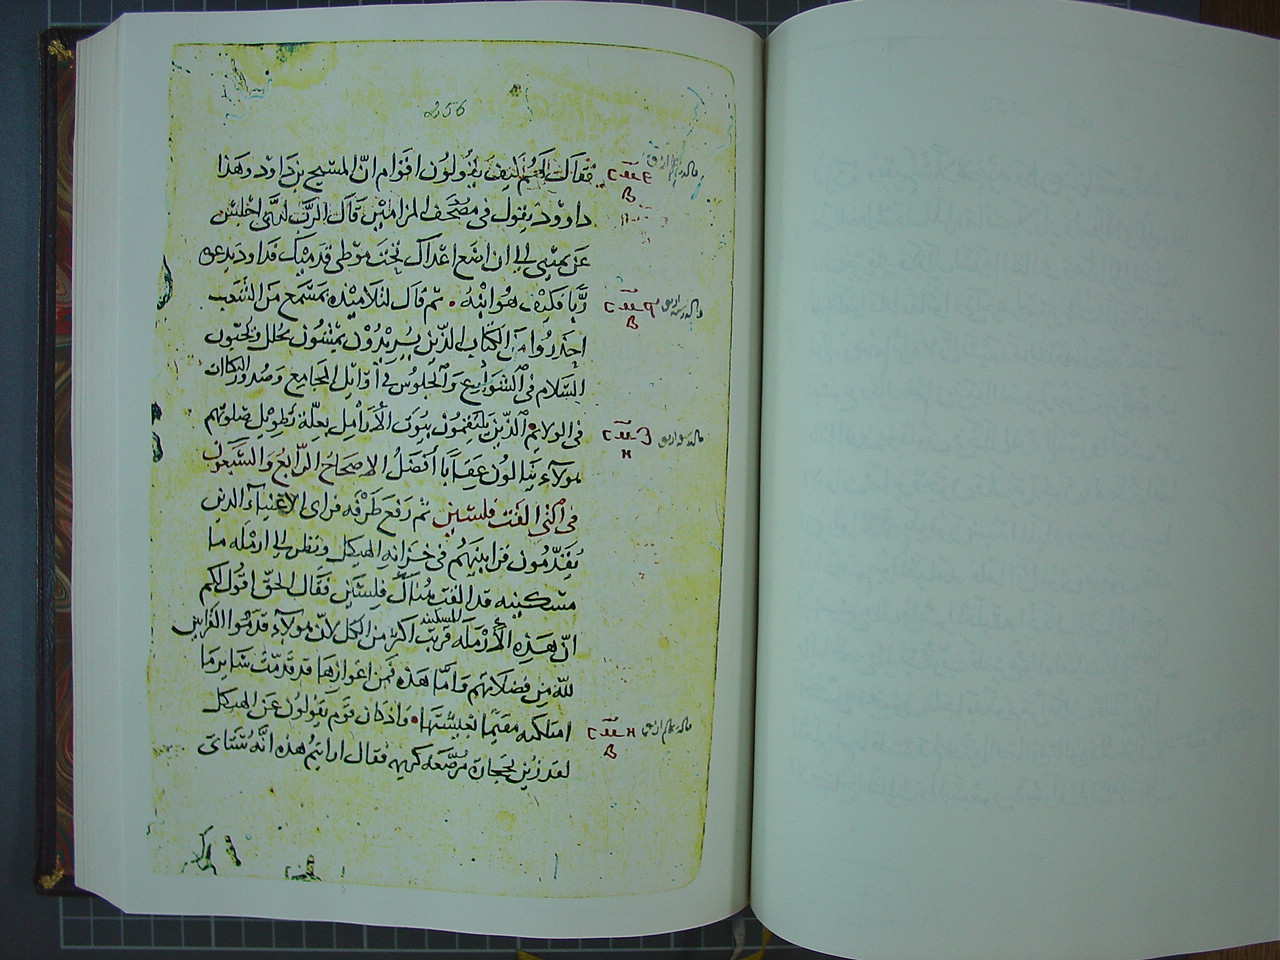 256
فقال لهم كيف يقولون اقوام انّ المسيح بن داود وهذا
داوود يقول في مصحف المزامير قال الربّ لربّي اجلس
عن يميني الى ان اضع اعداك تحت موطي قدميك فداود يدعوه
ربًّا فكيف هو ابنه. ثم قال لتلاميذه بمسمع من الشعب
احذروا من الكتاب الذين يريدون يمشون بحلل ويحبون
السلام في الشوارع والجلوس في أوائل المجامع وصدور التكاات
في الولايم. الذين يلتقمون بيوت الأرامل بعلّة تطويل صلوتهم
هولاء ينالون عقابا أفضل الاصحاح الرابع والسبعون
في التي القت فلسين ثم رفع طرفه فراى الاغنيآء الذين
يقدّمون قرابينهم في خزانه الهيكل ونظر الى ارمله ما
مسكينه قد القت هناك فلسين فقال الحق اقول لكم
انّ هذه الأرمله المسكينه قربت اكثر من الكل لانّ هولآء قدّموا القرابين
لله من فضلاتهم وامّا هذه فمن اعوازها قد قدّمت ساير ما
امتلكه مقيمًا لعيشتها. واذ كان قوم يقولون عن الهيكل
لقد زين بحجارة مرصّعه كريمه فقال ارايتم هذه انّه ستاتى